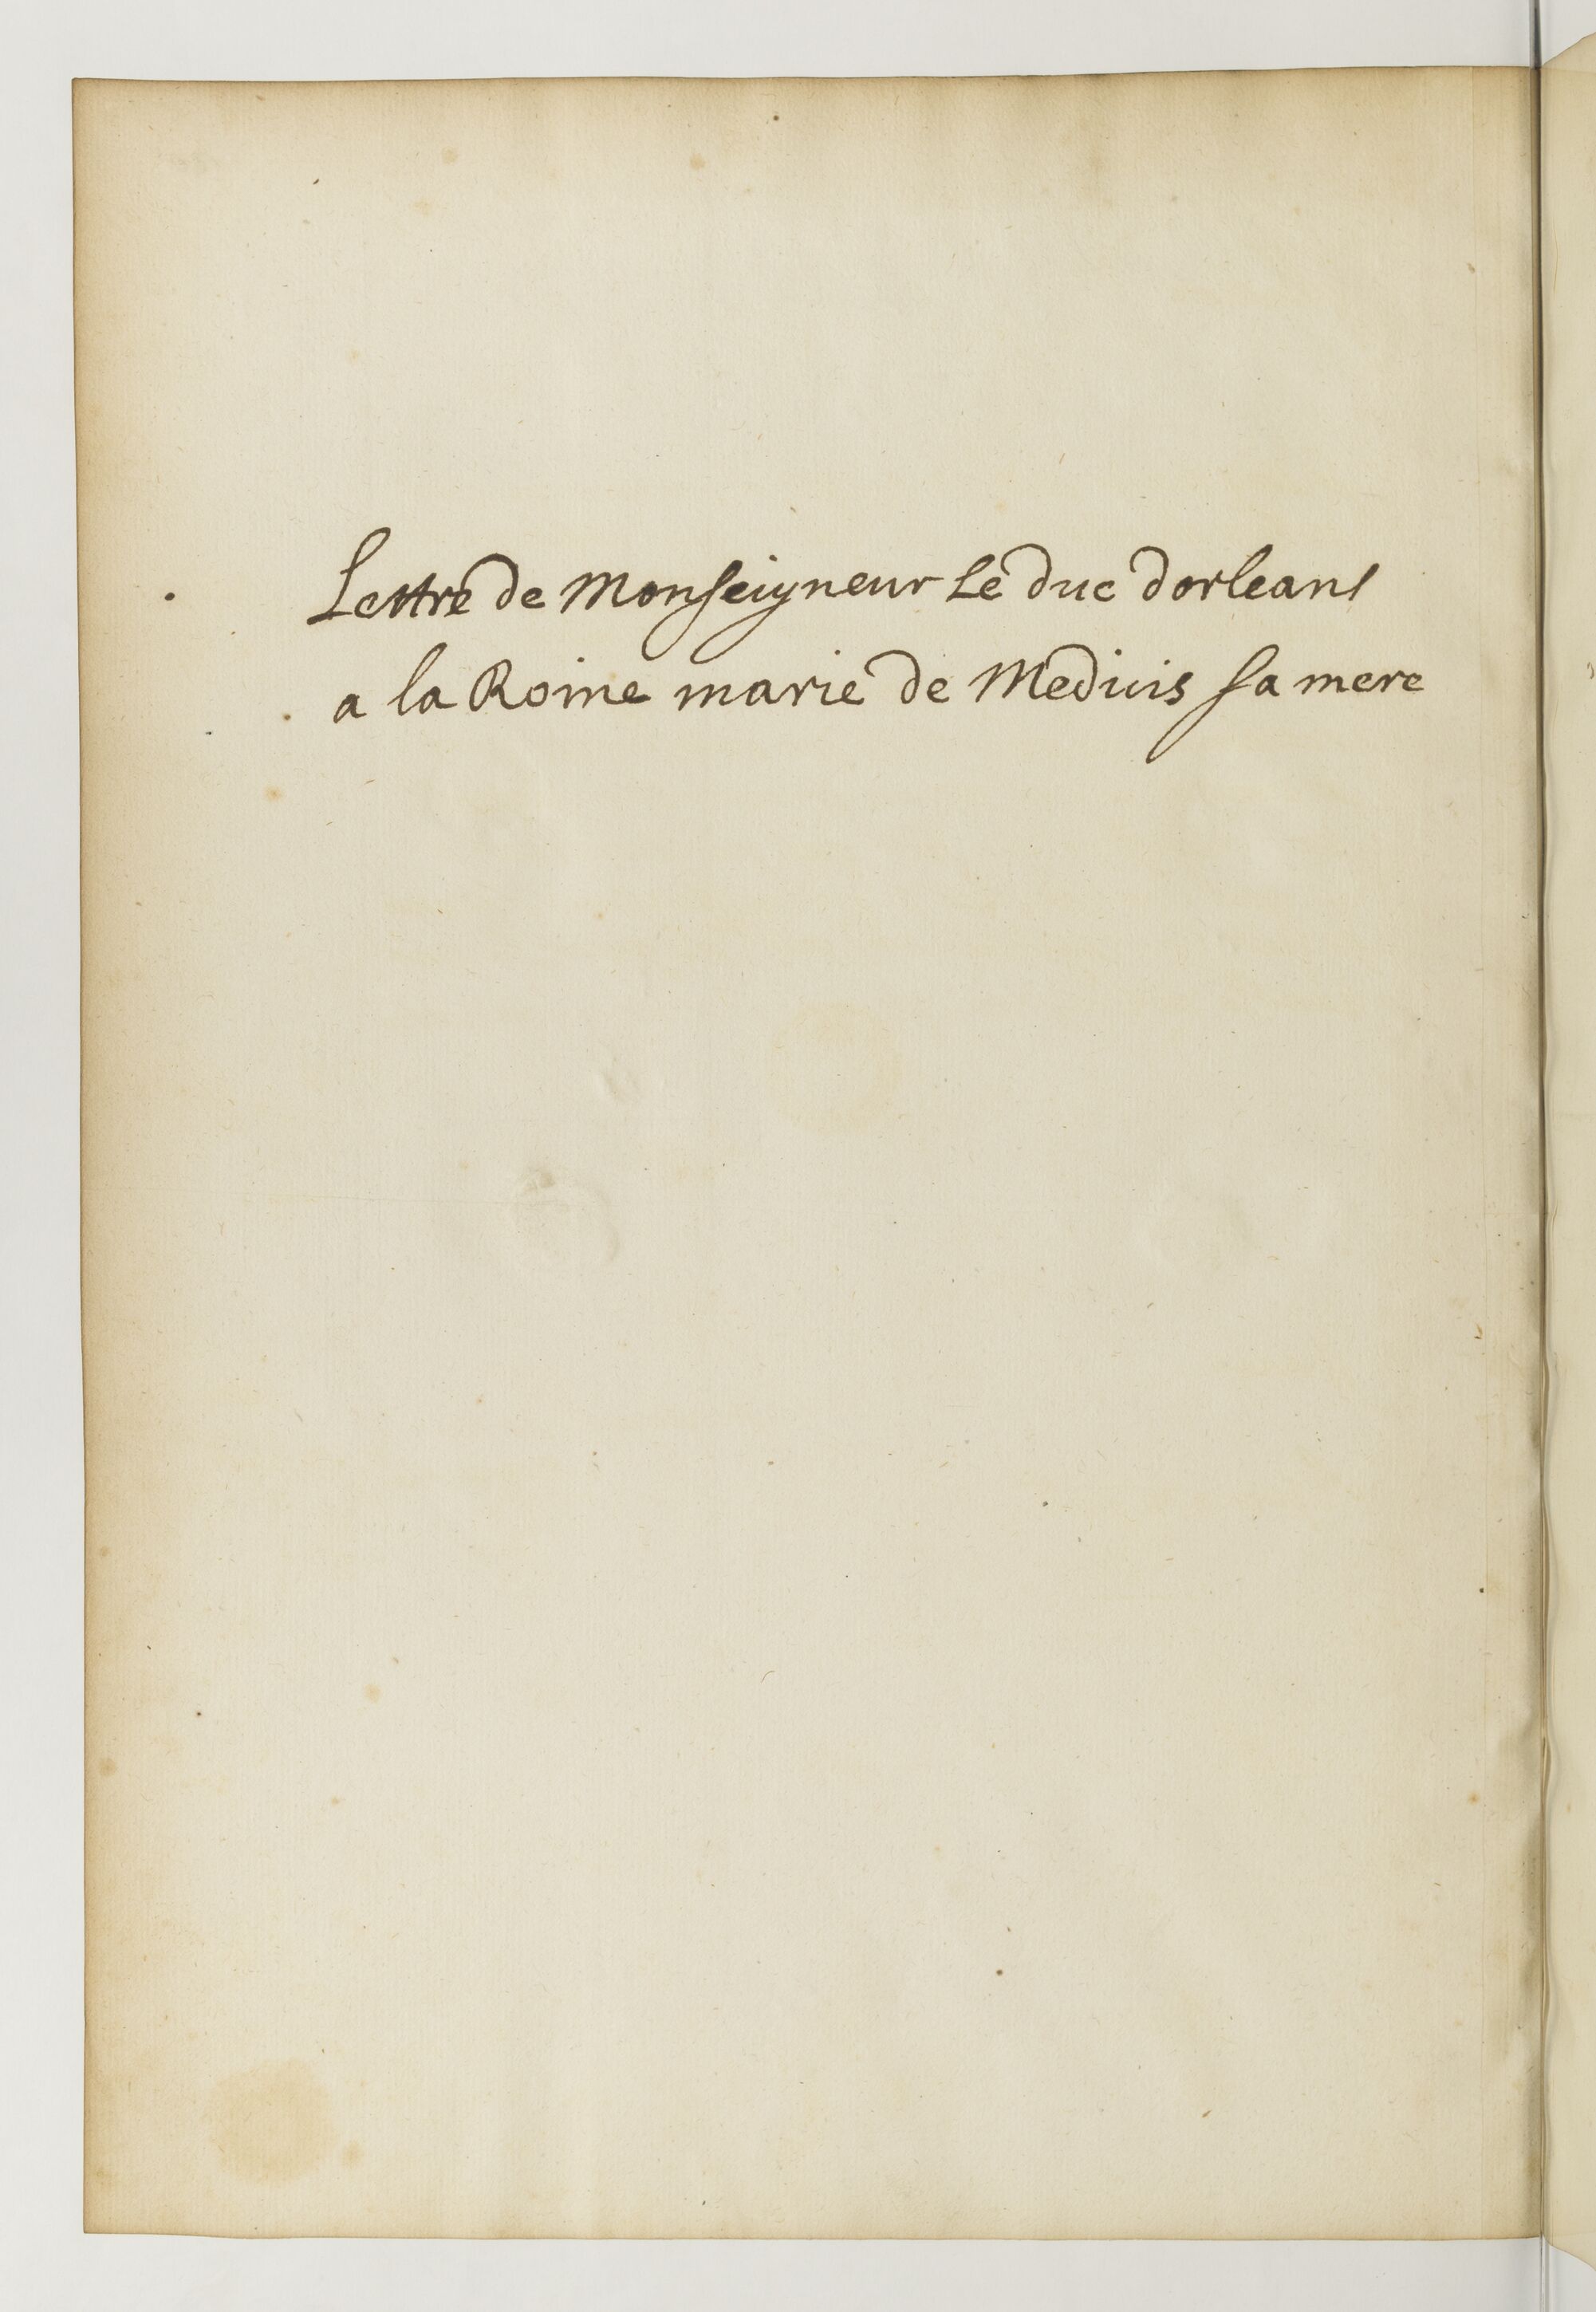 Lettre de Monseigneur Le duc dorleans
a la Roine marie de Medicis sa mere